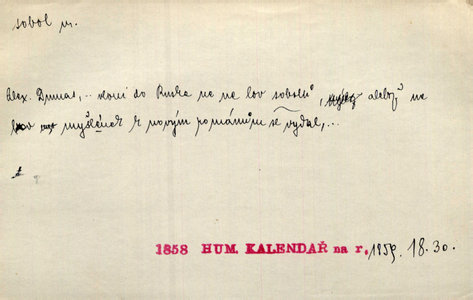 sobol m.
Alex. Dumas,.. loni do Ruska ne na lov sobolů, alebrž na
lov myšlének k novým románům se vydal,...
1858 HUM. KALENDAŘ na r. 1859. 18.30.